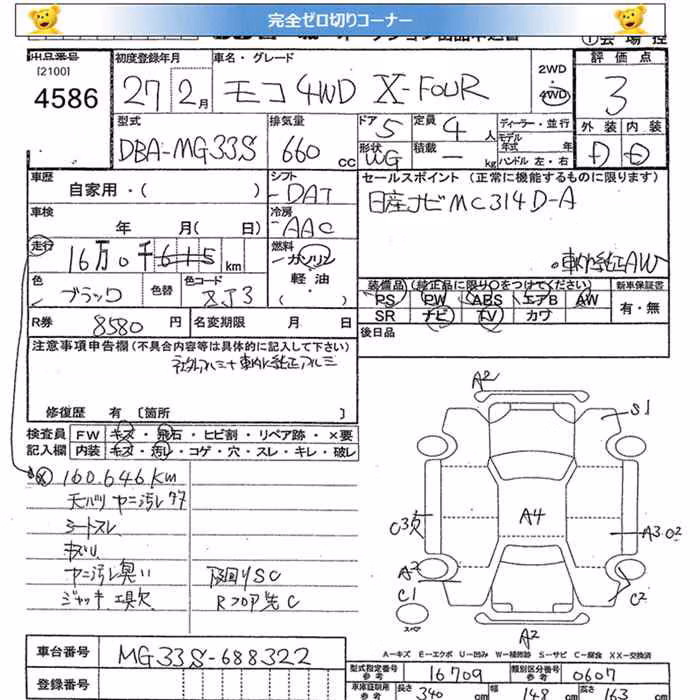 完全ゼロ切りコーナー
出品番号
[2100]
4586
初度登録年月
27年 2月
車名・グレード
モコ 4WD X-FOUR
2WD
・
4WD
評価点
3
外装 内装
D D
型式
DBA-MG33S
排気量
660 cc
ドア 5
形状 WG
定員 4人
積載 — kg
ディーラー・並行
モデル年式 年式
ハンドル 左・右
車歴
自家用・( )
シフト
DAT
車検
年 月( 日)
冷房
AAC
走行
16万0千615 km
燃料
ガソリン
軽油
・
色
ブラック
色替
色コード
ZJ3
R券 8580 円
名変期限 月 日
セールスポイント (正常に機能するものに限ります)
日産ナビMC314D-A
車内純正AW
装備品(純正品に限り○をつけてください)
PS PW ABS エアB AW
SR ナビ TV カワ
新車保証書
有・無
後日品
注意事項申告欄(不具合内容等は具体的に記入して下さい)
社外アルミ+車内に純正アルミ
修復歴 有 〔箇所 〕
検査員記入欄
FW キズ・飛石・ヒビ割・リペア跡・×要
内装 キズ・汚レ・コゲ・穴・スレ・キレ・破レ
160,646km
天バリ ヤニ汚レ
シートスレ
キズリ
ヤニ汚レ臭い
ジャッキ、工具欠
下回りSC
Rフロア先C
A2
S1
C3欠
A4
A3 02
A2
C1
C2
スペア
A2
A-キズ E-エクボ U-凹み W-補修跡 S-サビ C-腐食 XX-交換済
車台番号 MG33S-688322
登録番号
型式指定番号 参考 16709
類別区分番号 参考 0607
車体証明用 参考
長さ 340 cm
幅 148 cm
高さ 163 cm